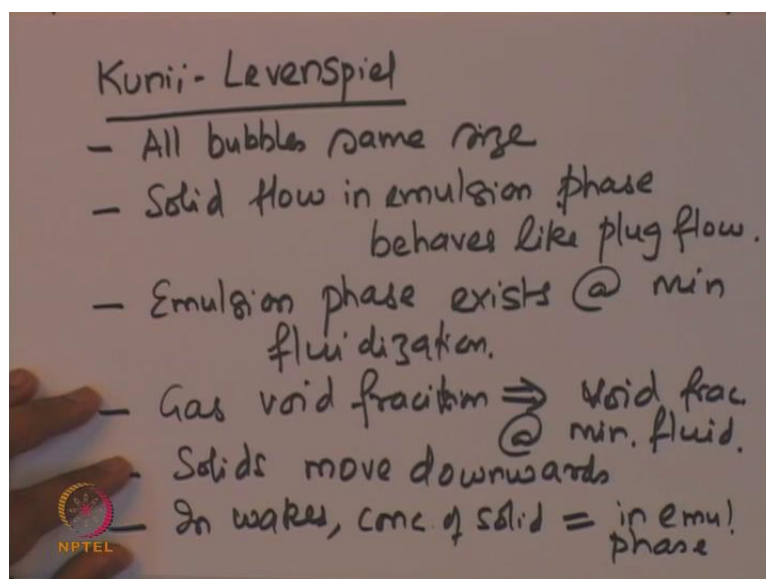 Kunii-Levenspiel
- All bubbles same size
- Solid flow in emulsion phase
behaves like plug flow.
- Emulsion phase exists @ min
fluidization.
- Gas void fraction ⇒ void frac.
@ min. fluid.
- Solids move downwards
- In wakes, conc. of solid = in emul.
phase
NPTEL